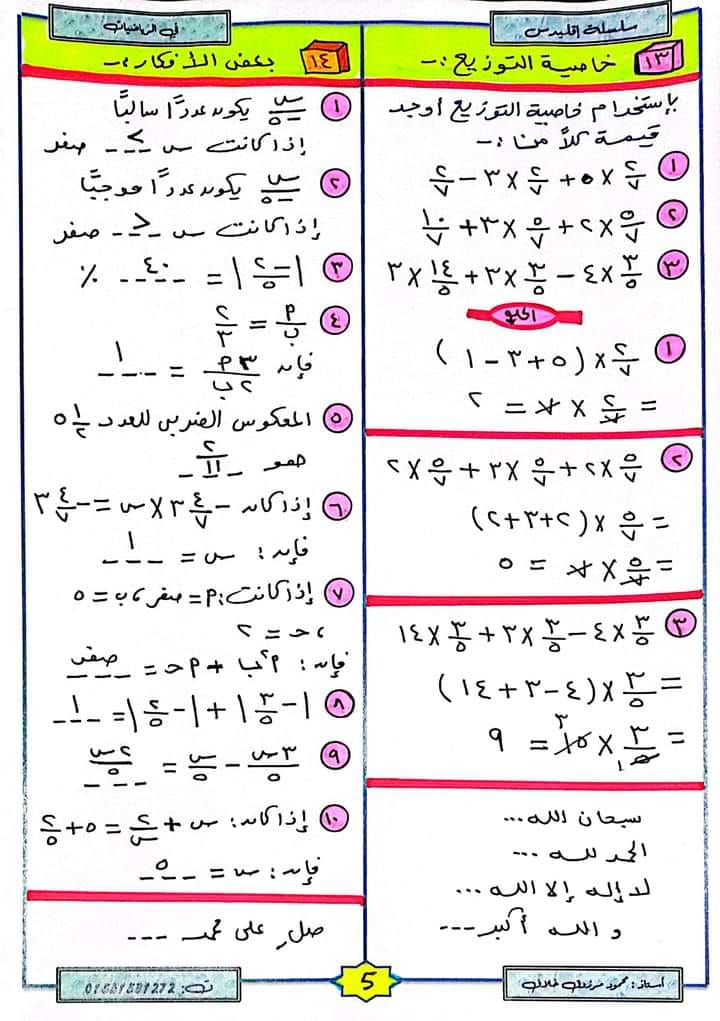 سلسلة إقليدس
في الرياضيات
١٣ خاصية التوزيع :-
بإستخدام خاصية التوزيع أوجد
قيمة كلاً من :-
١ ٢/٧ × ٥ + ٢/٧ × ٣ - ٢/٧
٢ ٥/٧ × ٢ + ٥/٧ × ٣ + ١٠/٧
٣ ٣/٥ × ٤ - ٣/٥ × ٣ + ١٤/٥ × ٣
الحل
١ ٢/٧ × (٥ + ٣ - ١)
= ٢/٧ × ٧ = ٢
٢ ٥/٧ × ٢ + ٥/٧ × ٣ + ٥/٧ × ٢
= ٥/٧ × (٢ + ٣ + ٢)
= ٥/٧ × ٧ = ٥
٣ ٣/٥ × ٤ - ٣/٥ × ٣ + ٣/٥ × ١٤
= ٣/٥ × (٤ - ٣ + ١٤)
= ٣/٥ × ١٥ = ٩
سبحان الله ...
الحمد لله ...
لا إله إلا الله ...
و الله أكبر ---
١٤ بعض الأفكار :-
١ س/٥ يكون عددًا سالبًا
إذا كانت س < صفر
٢ س/٥ يكون عددًا موجبًا
إذا كانت س > صفر
٣ |-٢/٥| = ٤٠ %
٤ P/ب = ٢/٣
فإن ٣P/٢ب = ١
٥ المعكوس الضربي للعدد ٥ ١/٢
هو ٢/١١
٦ إذا كان -٣ ٤/٧ × س = -٣ ٤/٧
فإن : س = ١
٧ إذا كانت : P = صفر ، ب = ٥
، حـ = ٢
فإن : P²ب + Pحـ = صفر
٨ |-٣/٥| + |-٢/٥| = ١
٩ ٣س/٥ - س/٥ = ٢س/٥
١٠ إذا كان : س + ٢/س = ٥ + ٢/٥
فإن : س = ٥
صلِ على محمد ---
5
ت :